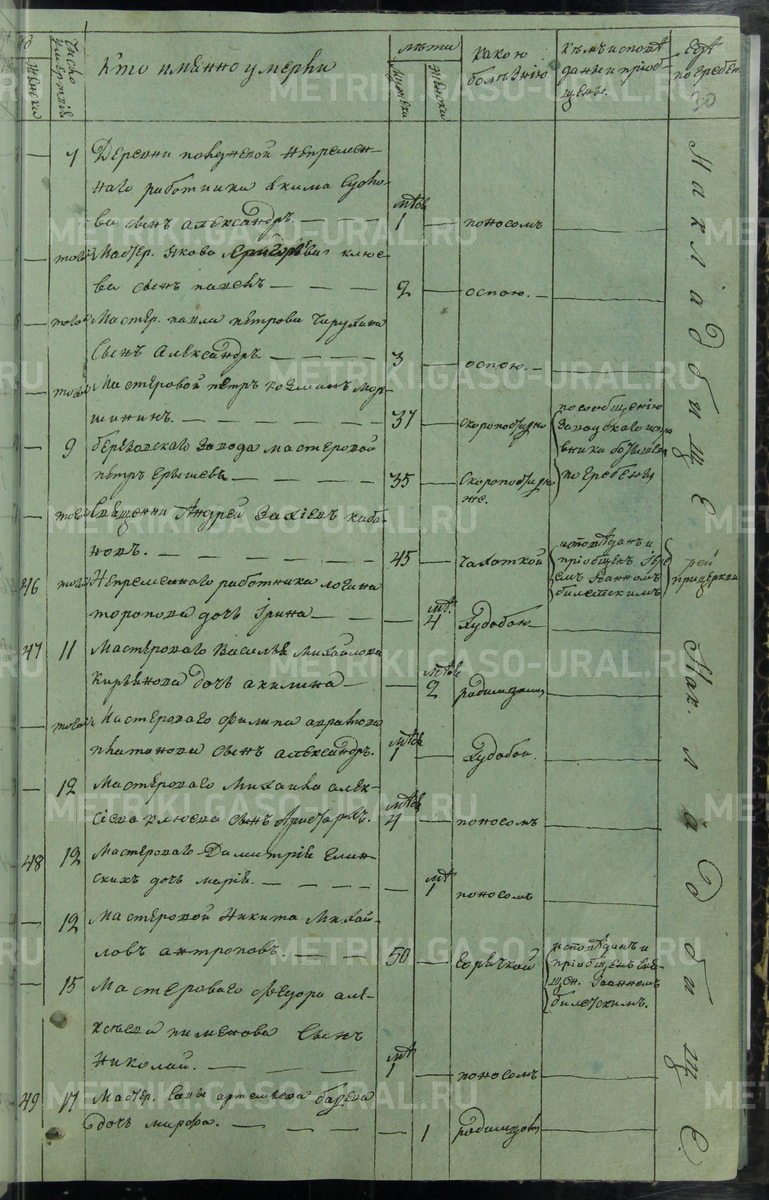 Число умертвія
Кто имянно умерли
лѣта
мужеска
женска
Какою болѣзнію
Кѣмъ исповѣ
даны и пріоб-
щены.
Гдѣ
погребены
7 Деревни непремен-
наго работника Якима
ва сынъ александръ — — — мѣся 1 — поносомъ
тогож Мастер. Якова Григорьева клюе-
ва сынъ павелъ — — — 2 — оспою. —
тогож Мастер. павла петрова
Сынъ Александръ. — — — 3 — оспою. —
тогож Мастеровой петръ козманъ мор-
шининъ. — — — 37 — Скоропостижно
по сообщенію
Заводскаго испра
вника
погребены
9 березовскаго завода мастеровой
петръ — — 35 — Скоропостиж-
но.
тогож Священни Андрей
— — — 45 — чахоткой
исповѣданъ и
пріобщенъ Іере
емъ Іоанномъ
билетскимъ
при церкви
46 тогож Непременнаго работника логина
торопова дочь Ирина — — — мѣ. 4 худобою —
47 11 Мастероваго Василья Михайлова
дочь акилина — — мѣся 2 родимцомъ
тогож Мастероваго филипа
платонова сынъ александръ. мѣся 1 — худобой.
12 Мастероваго Михаила алек-
сіева клюева сынъ Аристархъ. мѣся 4 — поносомъ
48 12 Мастероваго Димитрія Елин-
скихъ дочь марія. — — — мѣ 1 поносомъ
12 Мастеровой Никита Михай-
ловъ антроповъ. — — 50 — горячкой
исповѣданъ и
пріобщенъ свя-
щен. Іоанномъ
билетскимъ.
15 Мастероваго федора але-
ксѣева пименова Сынъ
Николай. — — — мѣ 1 — поносомъ
49 17 Мастер. савы артемьева
дочь марфа. — — — 1 родимцомъ
На кладбище
На кладбище
METRIKI.GASO-URAL.RU